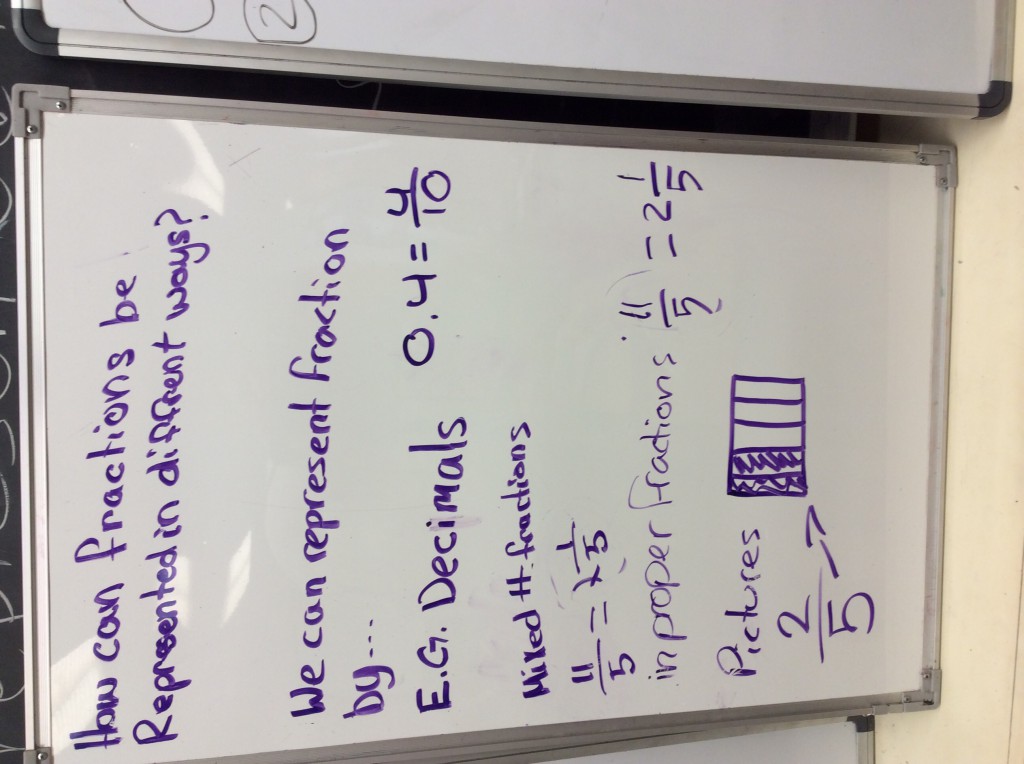 How can fractions be
Represented in diffrent ways?
We can represent fraction
by...
E.G. Decimals 0.4 = 4/10
Mixed fractions
11/5 = 2 1/5
inproper fractions 11/5 = 2 1/5
Pictures
2/5
2